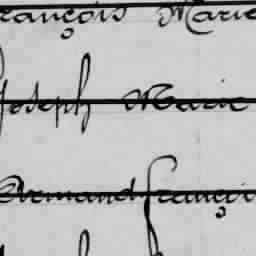 rançois Marie
Joseph Marie
Armand françoi